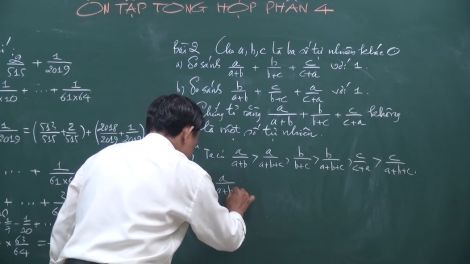 ÔN TẬP TỔNG HỢP PHẦN 4
2/515 + 1/2019
×10 + ... + 1/61×64
1/2019 = (513/515 + 2/515) + (2018/2019 + 1/2019)
... + 1/61×64
Bài 2 Cho a, b, c là ba số tự nhiên khác 0
a) So sánh a/a+b + b/b+c + c/c+a với 1
b) So sánh b/a+b + c/b+c + a/c+a với 1.
Chứng tỏ rằng a/a+b + b/b+c + c/c+a không
là một số tự nhiên.
Ta có a/a+b > a/a+b+c ; b/b+c > b/a+b+c ; c/c+a > c/a+b+c.